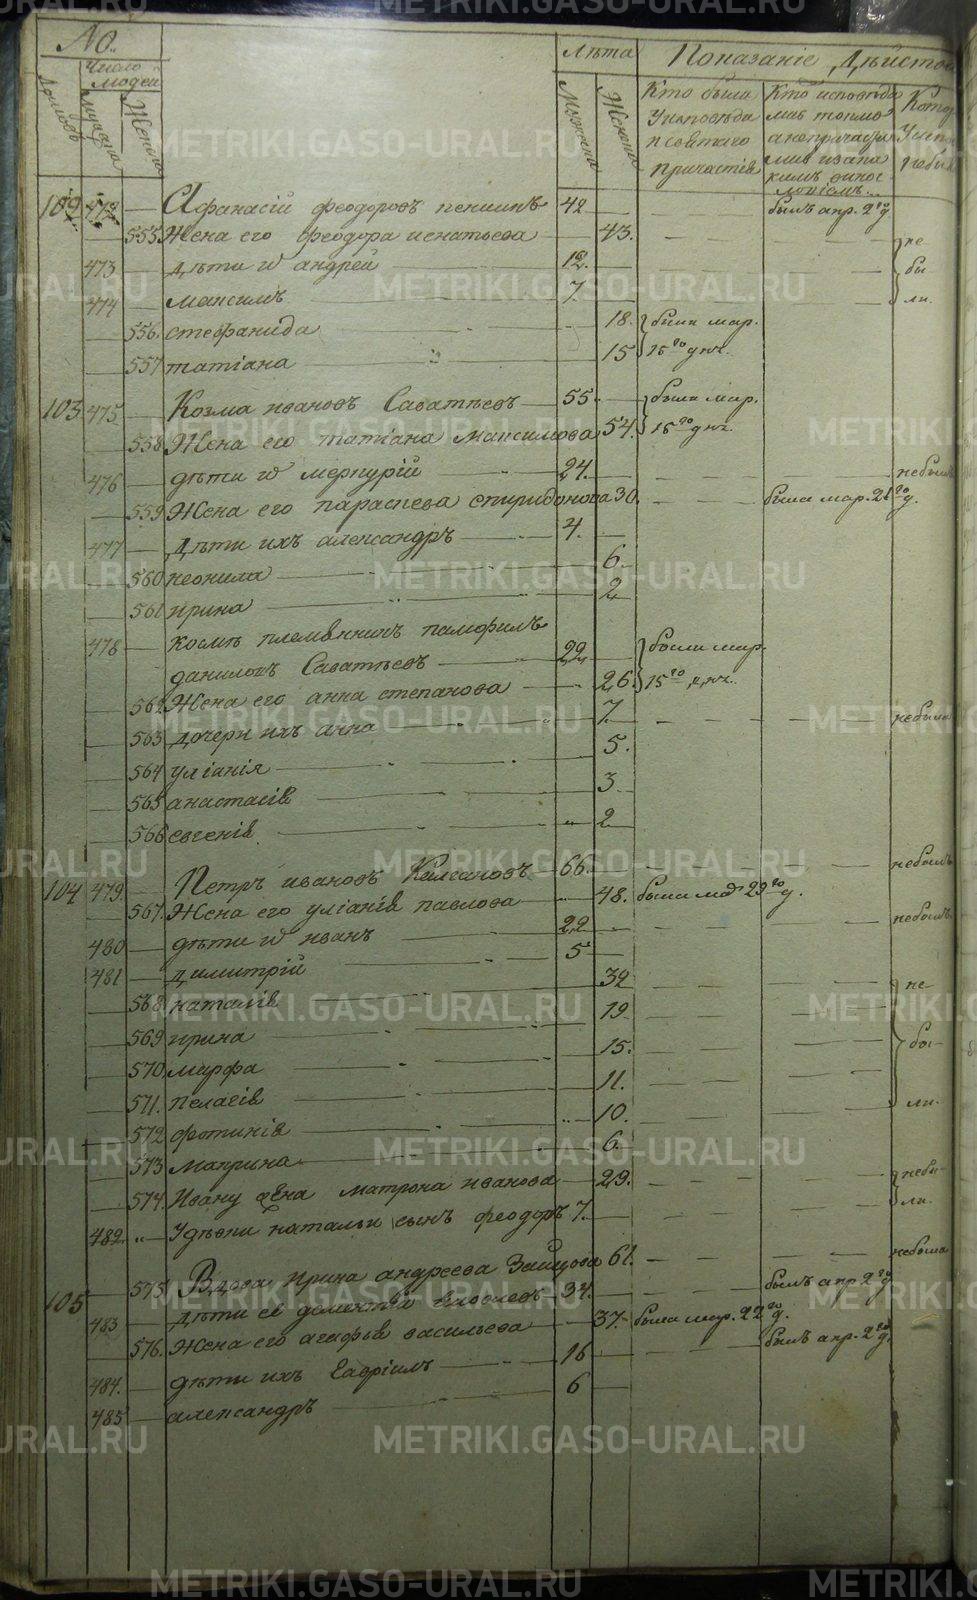 No.
Лѣта
Показаніе Дѣйство
Домовъ
Число
людей
мужеска
Женска
Мужеска
Женска
Кто были
У исповѣди
и святаго
причастія
Кто исповѣда
лис токмо
а непричаща
лис и за ка
кимъ винос
ловіемъ
102 472 — Афанасій феодоровъ пеншинъ 42 — былъ апр. 2го д.
555 Жена его феодора игнатьева 43. не
473 дѣти ѿ андрей 12. бы
474 максимъ 7. ли.
556. стефанида 18. были мар.
557 татіана 15 15го д.
103 475 — Козма ивановъ Саватѣевъ 55 — были мар.
558 Жена его татіана максимова 54. 15го д.
476 дѣти ѿ меркурій 24. небылъ
559 Жена его параскева спиридонова 30. была мар. 21го д.
477 — Дѣти ихъ александръ 4. —
560 неонила 6.
561 ирина 2
478 — космы племянникъ памфилъ
даниловъ Саватѣевъ 22 были мар.
562 Жена его анна степанова 26. 15го д.
563 дочери ихъ анна 7. небыли
564 уліанія 5.
565 анастасія 3
566 евгенія 2
104 479. Петръ ивановъ 66. небылъ
567. Жена его уліанія павлова 48. была мар. 23го д.
480 — дѣти ѿ иванъ 22 небылъ
481 — димитрій 5 —
568 наталія 32 не
569 ирина 19
570 марфа 15. бы
571. пелагія 11.
572 фотинія 10. ли.
573 матрина 6.
574. Ивану жена матрона иванова 29. небы
ли.
482. " — У дѣвки натальи сынъ феодоръ 7. —
105 575. Вдова ирина андреева Зайцова 61. небыла
483 — дѣти ее 34. былъ апр. 2го д.
576. Жена его агафья васильева 37. была мар. 22го д.
484. — дѣти ихъ Гавріилъ 16 былъ апр. 2го д.
485 — александръ 6 —
METRIKI.GASO-URAL.RU